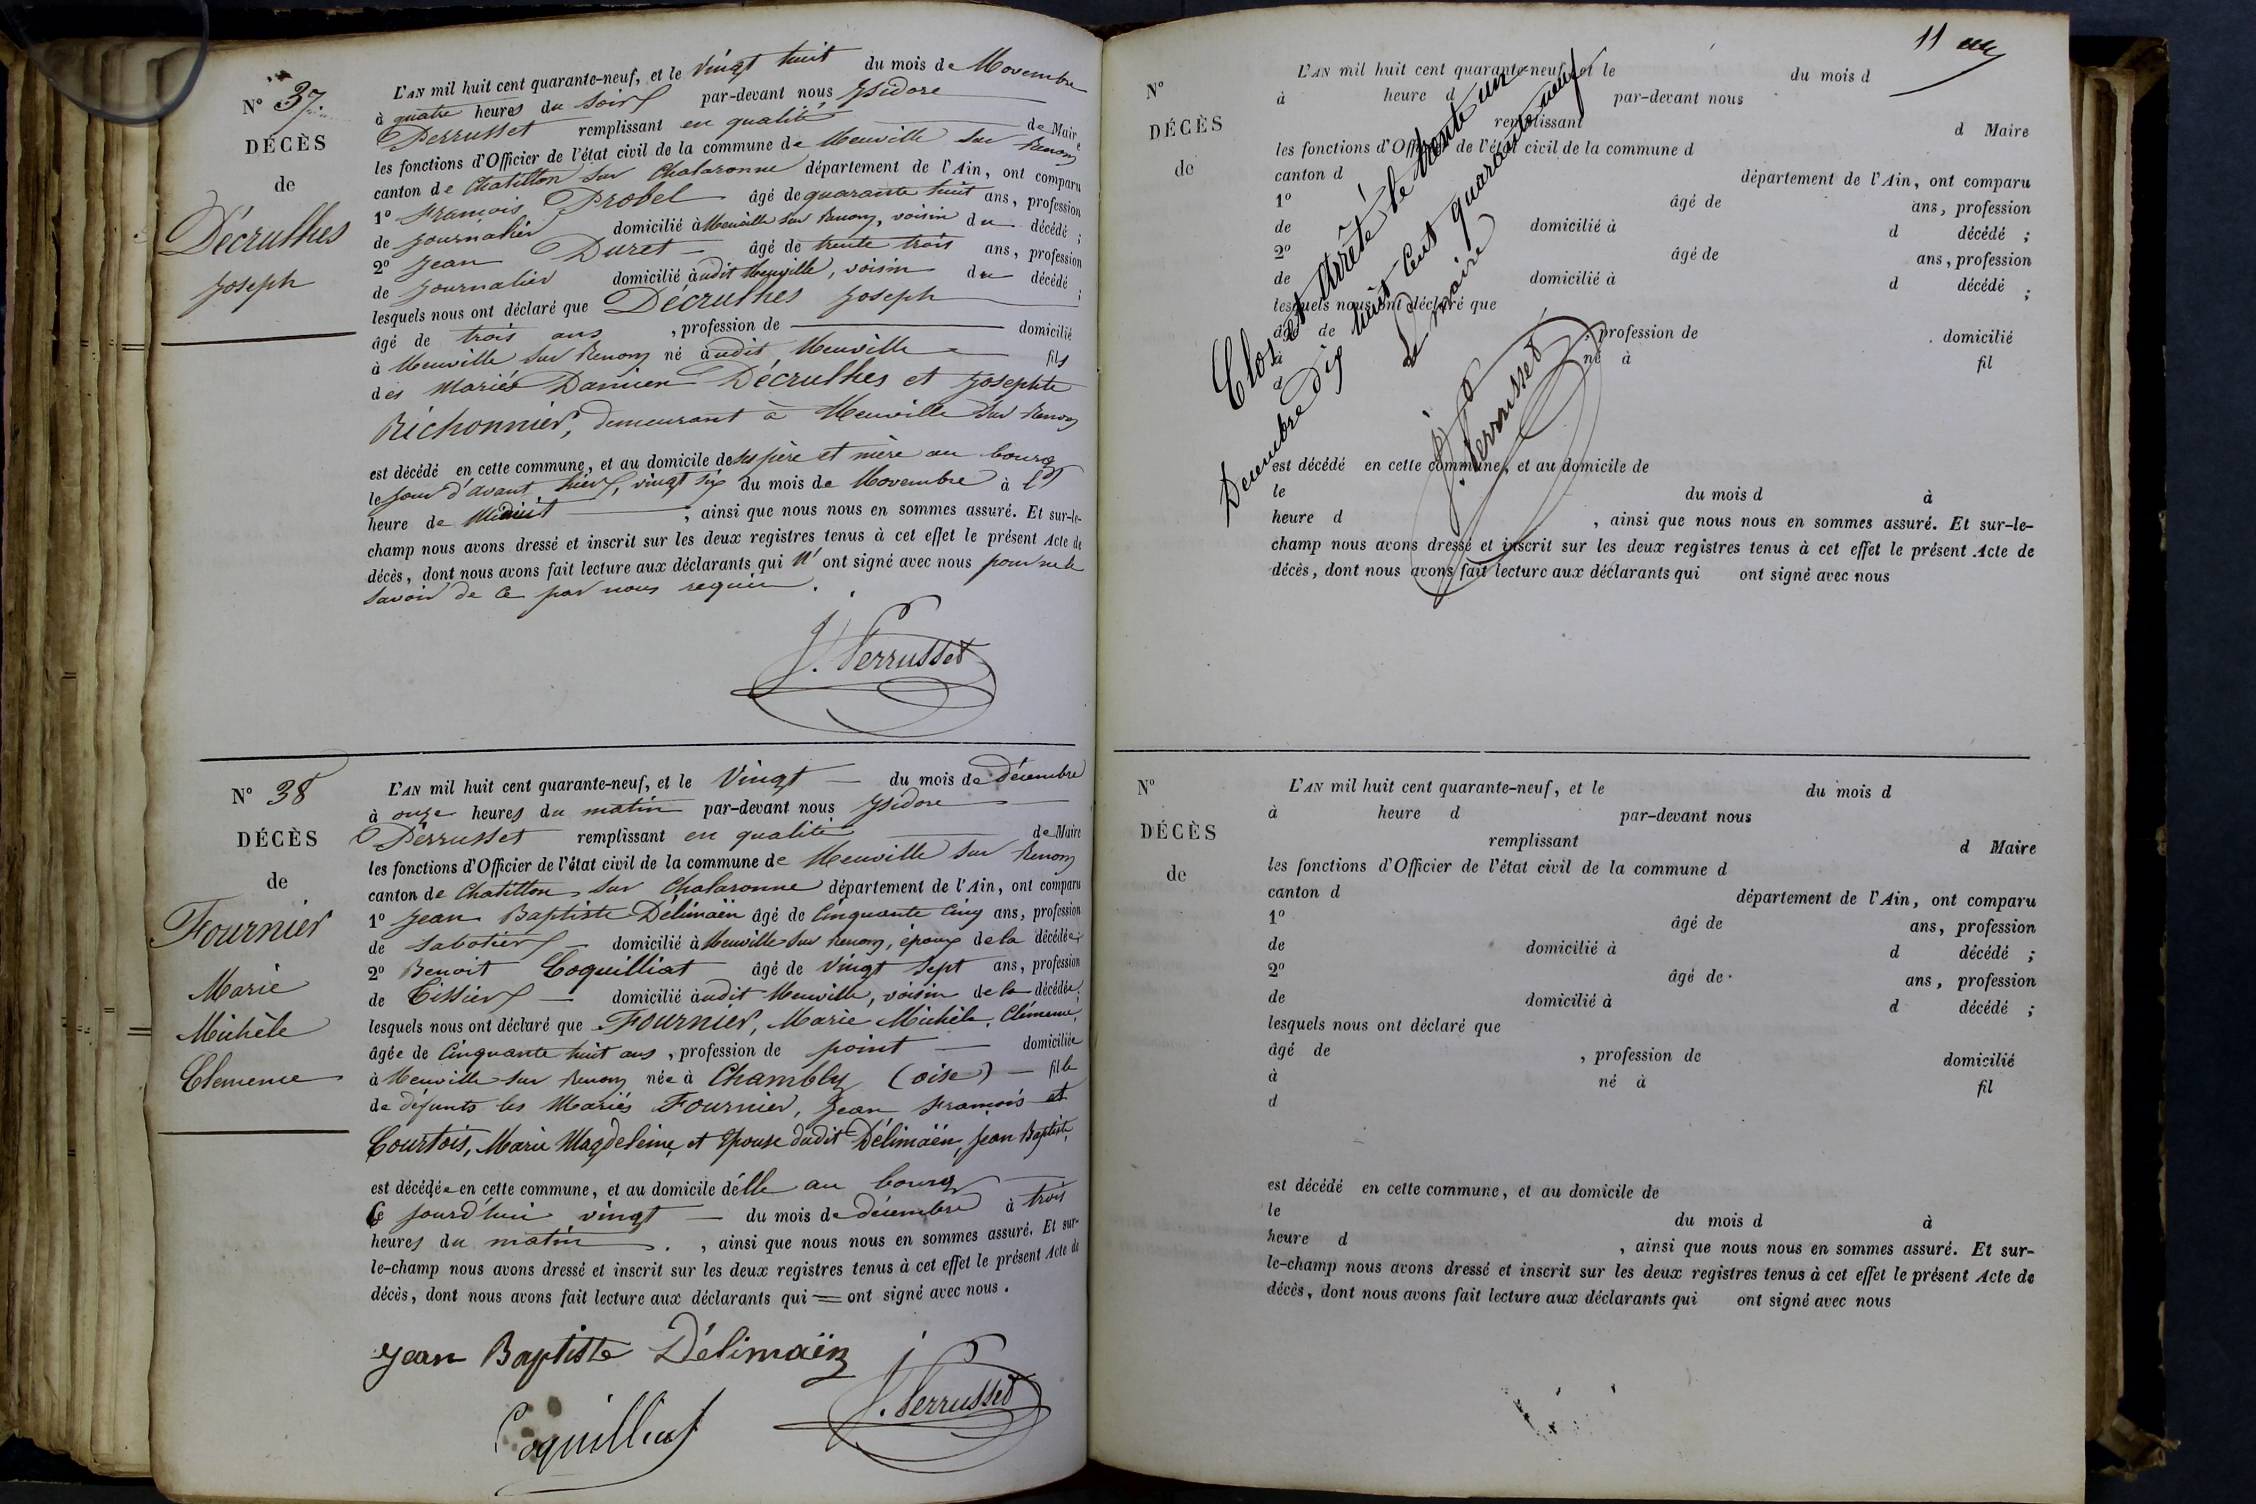 N° 37.
DÉCÈS
de
Décrulhes
Joseph
L'AN mil huit cent quarante-neuf, et le Vingt huit du mois de Novembre
à quatre heures du soir par-devant nous Ysidore
Perrusset remplissant en qualité de Maire
les fonctions d'Officier de l'état civil de la commune de Neuville sur Renom
canton de Chatillon sur Chalaronne département de l'Ain, ont comparu
1° François Probel âgé de quarante huit ans, profession
de journalier domicilié à Neuville sur Renom, voisin du décédé ;
2° Jean Duret âgé de trente trois ans, profession
de journalier domicilié audit Neuville, voisin du décédé ;
lesquels nous ont déclaré que Décrulhes Joseph
âgé de trois ans , profession de domicilié
à Neuville sur Renom né audit Neuville fils
des Mariés Damien Décrulhes et Josephte
Richonnier, demeurant à Neuville sur Renom
est décédé en cette commune, et au domicile de ses père et mère au bourg
le jour d'avant hier, vingt six du mois de Novembre à l'
heure de Minuit , ainsi que nous nous en sommes assuré. Et sur-le-
champ nous avons dressé et inscrit sur les deux registres tenus à cet effet le présent Acte de
décès, dont nous avons fait lecture aux déclarants qui n'ont signé avec nous pour ne le
savoir de ce par nous requis.
J. Perrusset
N° 38
DÉCÈS
de
Fournier
Marie
Michèle
Clemence
L'AN mil huit cent quarante-neuf, et le Vingt du mois de décembre
à onze heures du matin par-devant nous Ysidore
Perrusset remplissant en qualité de Maire
les fonctions d'Officier de l'état civil de la commune de Neuville sur Renom
canton de Chatillon sur Chalaronne département de l'Ain, ont comparu
1° Jean Baptiste Délimaën âgé de Cinquante Cinq ans, profession
de Sabotier domicilié à Neuville sur Renom, époux de la décédée ;
2° Benoit Coquilliat âgé de Vingt Sept ans, profession
de Tissier domicilié audit Neuville, voisin de la décédée ;
lesquels nous ont déclaré que Fournier, Marie Michèle, Clémence,
âgée de Cinquante huit ans , profession de point domiciliée
à Neuville sur Renom née à Chambly (oise) fille
de défunts les Mariés Fournier, Jean François et
Courtois, Marie Magdeleine, et Epouse dudit Délimaën, Jean Baptiste,
est décédée en cette commune, et au domicile d'elle au bourg
Ce jourd'hui vingt du mois de décembre à trois
heures du matin , ainsi que nous nous en sommes assuré. Et sur-
le-champ nous avons dressé et inscrit sur les deux registres tenus à cet effet le présent Acte de
décès, dont nous avons fait lecture aux déclarants qui = ont signé avec nous.
Jean Baptiste Délimaën
Coquilliat
J. Perrusset
11
N°
DÉCÈS
de
L'AN mil huit cent quarante-neuf, et le du mois d
à heure d par-devant nous
remplissant d Maire
les fonctions d'Officier de l'état civil de la commune d
canton d département de l'Ain, ont comparu
1° âgé de ans, profession
de domicilié à d décédé ;
2° âgé de ans, profession
de domicilié à d décédé ;
lesquels nous ont déclaré que
âgé de , profession de domicilié
à né à fil
d
est décédé en cette commune, et au domicile de
le du mois d à
heure d , ainsi que nous nous en sommes assuré. Et sur-le-
champ nous avons dressé et inscrit sur les deux registres tenus à cet effet le présent Acte de
décès, dont nous avons fait lecture aux déclarants qui ont signé avec nous
Clos et Arrêté le trente un
Decembre dix huit Cent quarante neuf
le maire
J. Perrusset
N°
DÉCÈS
de
L'AN mil huit cent quarante-neuf, et le du mois d
à heure d par-devant nous
remplissant d Maire
les fonctions d'Officier de l'état civil de la commune d
canton d département de l'Ain, ont comparu
1° âgé de ans, profession
de domicilié à d décédé ;
2° âgé de ans, profession
de domicilié à d décédé ;
lesquels nous ont déclaré que
âgé de , profession de domicilié
à né à fil
d
est décédé en cette commune, et au domicile de
le du mois d à
heure d , ainsi que nous nous en sommes assuré. Et sur-
le-champ nous avons dressé et inscrit sur les deux registres tenus à cet effet le présent Acte de
décès, dont nous avons fait lecture aux déclarants qui ont signé avec nous